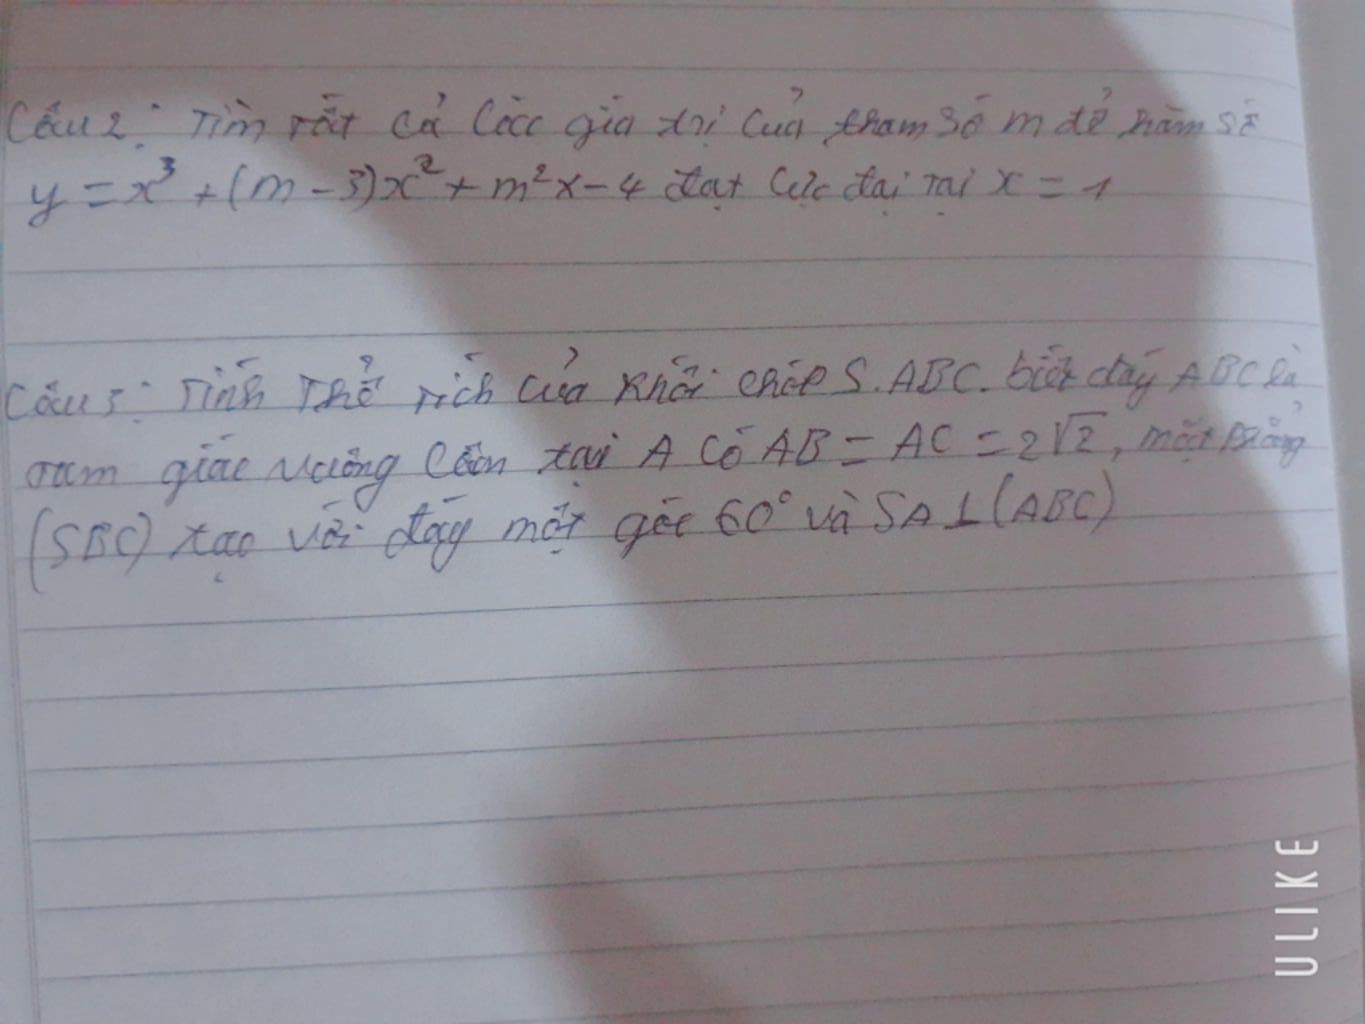 Câu 2: Tìm tất cả các giá trị của tham số m để hàm số
y = x³ + (m - 3)x² + m²x - 4 đạt cực đại tại x = 1
Câu 3: Tính thể tích của khối chóp S.ABC. biết đáy ABC là
tam giác vuông cân tại A có AB = AC = 2√2, mặt phẳng
(SBC) tạo với đáy một góc 60° và SA ⊥ (ABC)
ULIKE